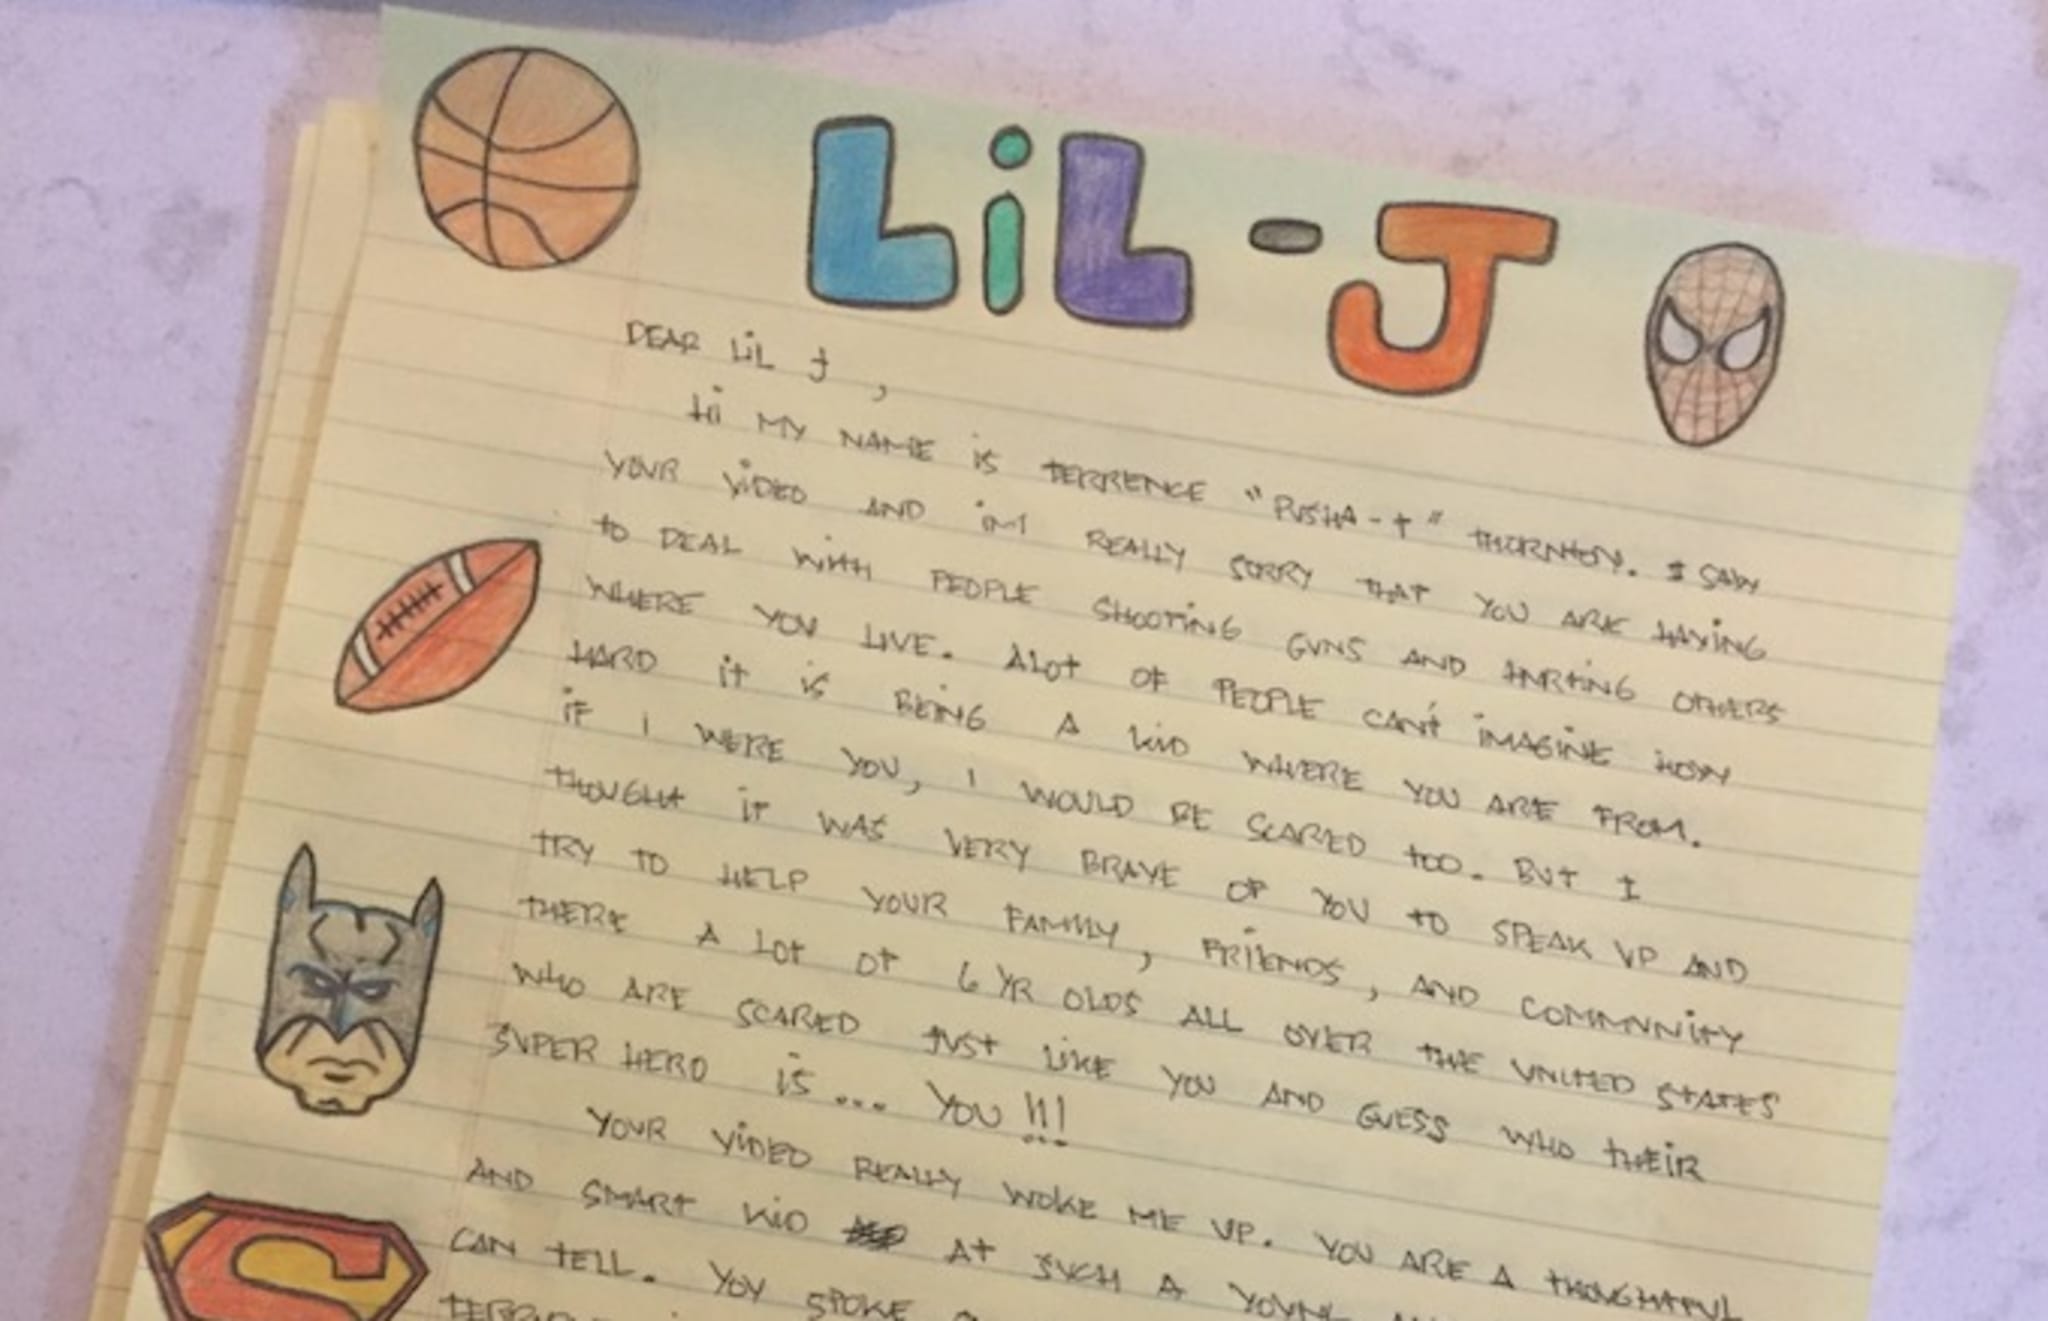 LiL-J
DEAR LiL J,
Hi MY NAME iS TERRENCE "PUSHA-T" THORNTON. I SAW
YOUR ViDEO AND iM REALLY SORRY THAT YOU ARE HAViNG
TO DEAL WiTH PEOPLE SHOOTiNG GUNS AND HURTiNG OTHERS
WHERE YOU LiVE. ALOT OF PEOPLE CAN'T iMAGiNE HOW
HARD iT iS BEiNG A KiD WHERE YOU ARE FROM.
iF I WERE YOU, I WOULD BE SCARED TOO. BUT I
THOUGHT iT WAS VERY BRAVE OF YOU TO SPEAK UP AND
TRY TO HELP YOUR FAMiLY, FRiENDS, AND COMMUNiTY
THERE A LOT OF 6 YR OLDS ALL OVER THE UNiTED STATES
WHO ARE SCARED JUST LiKE YOU AND GUESS WHO THEiR
SUPER HERO iS... YOU!!!
YOUR ViDEO REALLY WOKE ME UP. YOU ARE A THOUGHTFUL
AND SMART KiD AT SUCH A YOUNG
CAN TELL. YOU SPOKE
S